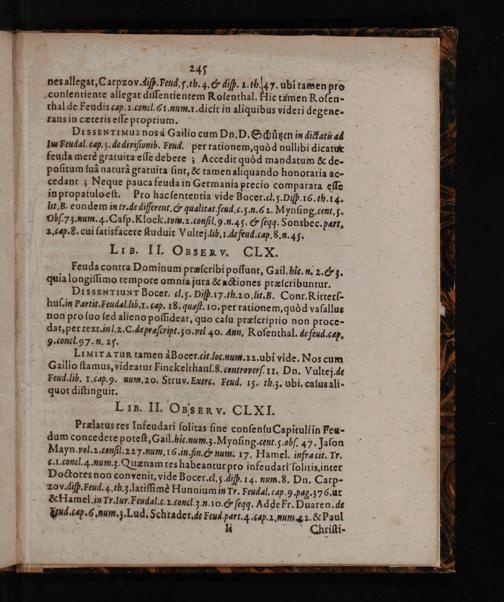 245
nes allegat, Carpzov. disp. Feud. 5. th. 4. & disp. 2. th. 47. ubi tamen pro
consentiente allegat dissentientem Rosenthal. Hic tamen Rosen-
thal de Feudis cap. 2. concl. 61. num. 1. dicit in aliquibus videri degene-
rans in cæteris esse proprium.
DISSENTIMUS nos á Gailio cum Dn. D. Schützen in dictatis ad
Ius Feudal. cap. 3. de divisionib. Feud. per rationem, quòd nullibi dicatur
feuda merè gratuita esse debere ; Accedit quòd mandatum & de-
positum suâ naturâ gratuita sint, & tamen aliquando honoraria ac-
cedant ; Neque pauca feuda in Germania precio comparata esse
in propatulo est. Pro hac sententia vide Bocer. cl. 5. Disp. 16. th. 14.
lit. B. eundem in tr. de different. & qualitat. feud. c. 5. n. 62. Mynsing. cent. 5.
Obs. 73. num. 4. Casp. Klock. tom. 2. consil. 9. n. 45. & seqq. Sonsbec. part.
2. cap. 8. cui satisfacere studuit Vultej. lib. 1. de feud. cap. 8. n. 45.
LIB. II. OBSERV. CLX.
Feuda contra Dominum præscribi possunt, Gail. hîc. n. 2. & 3.
quia longissimo tempore omnia jura & actiones præscribuntur.
DISSENTIUNT Bocer. cl. 5. Disp. 17. th. 20. lit. B. Conr. Ritters-
hus. in Partit. Feudal. lib. 1. cap. 18. quæst. 10. per rationem, quòd vasallus
non pro suo sed alieno possideat, quo casu præscriptio non proce-
dat, per text. in l. 2. C. de præscript. 30. vel 40. Ann. Rosenthal. de feud. cap.
9. concl. 97. n. 25.
LIMITATUR tamen à Bocer. cit. loc. num. 22. ubi vide. Nos cum
Gailio stamus, videatur Finckelthaus. 8. controvers. 11. Dn. Vultej. de
Feud. lib. 1. cap. 9. num. 20. Struv. Exerc. Feud. 15. th. 3. ubi. casus ali-
quot distinguit.
LIB. II. OBSERV. CLXI.
Prælatus res Infeudari solitas sine consensu Capituli in Feu-
dum concedere potest, Gail. hîc. num. 3. Mynsing. cent. 5. obs. 47. Jason
Mayn. vol. 2. consil. 227. num. 16. in fin. & num. 17. Hamel. infra cit. Tr.
c. 1. concl. 4. num. 3. Quænam res habeantur pro infeudari solitis, inter
Doctores non convenit, vide Bocer. cl. 5. disp. 14. num. 8. Dn. Carp-
zov. disp. Feud. 4. th. 3. latissimè Hunnium in Tr. Feudal. cap. 9. pag. 376. ut
& Hamel. in Tr. Iur. Feudal. c. 2. concl. 3. n. 10. & seqq. Adde Fr. Duaren. de
Feud. cap. 6. num. 3. Lud. Schrader. de Feud. part. 4. cap. 2. num. 22. & Paul
Ii Christi-